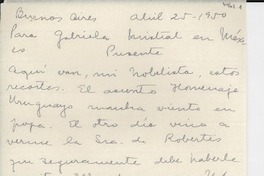 Buenos Aires Abril 25-1950
Para Gabriela Mistral en Méxi
co Presente
Aquí van, mi Nobelista, estos
recortes. El asunto Homenaje
Uruguayo marcha viento en
popa. El otro día vino a
verme la Sra. de Robertis
que seguramente debe haberle